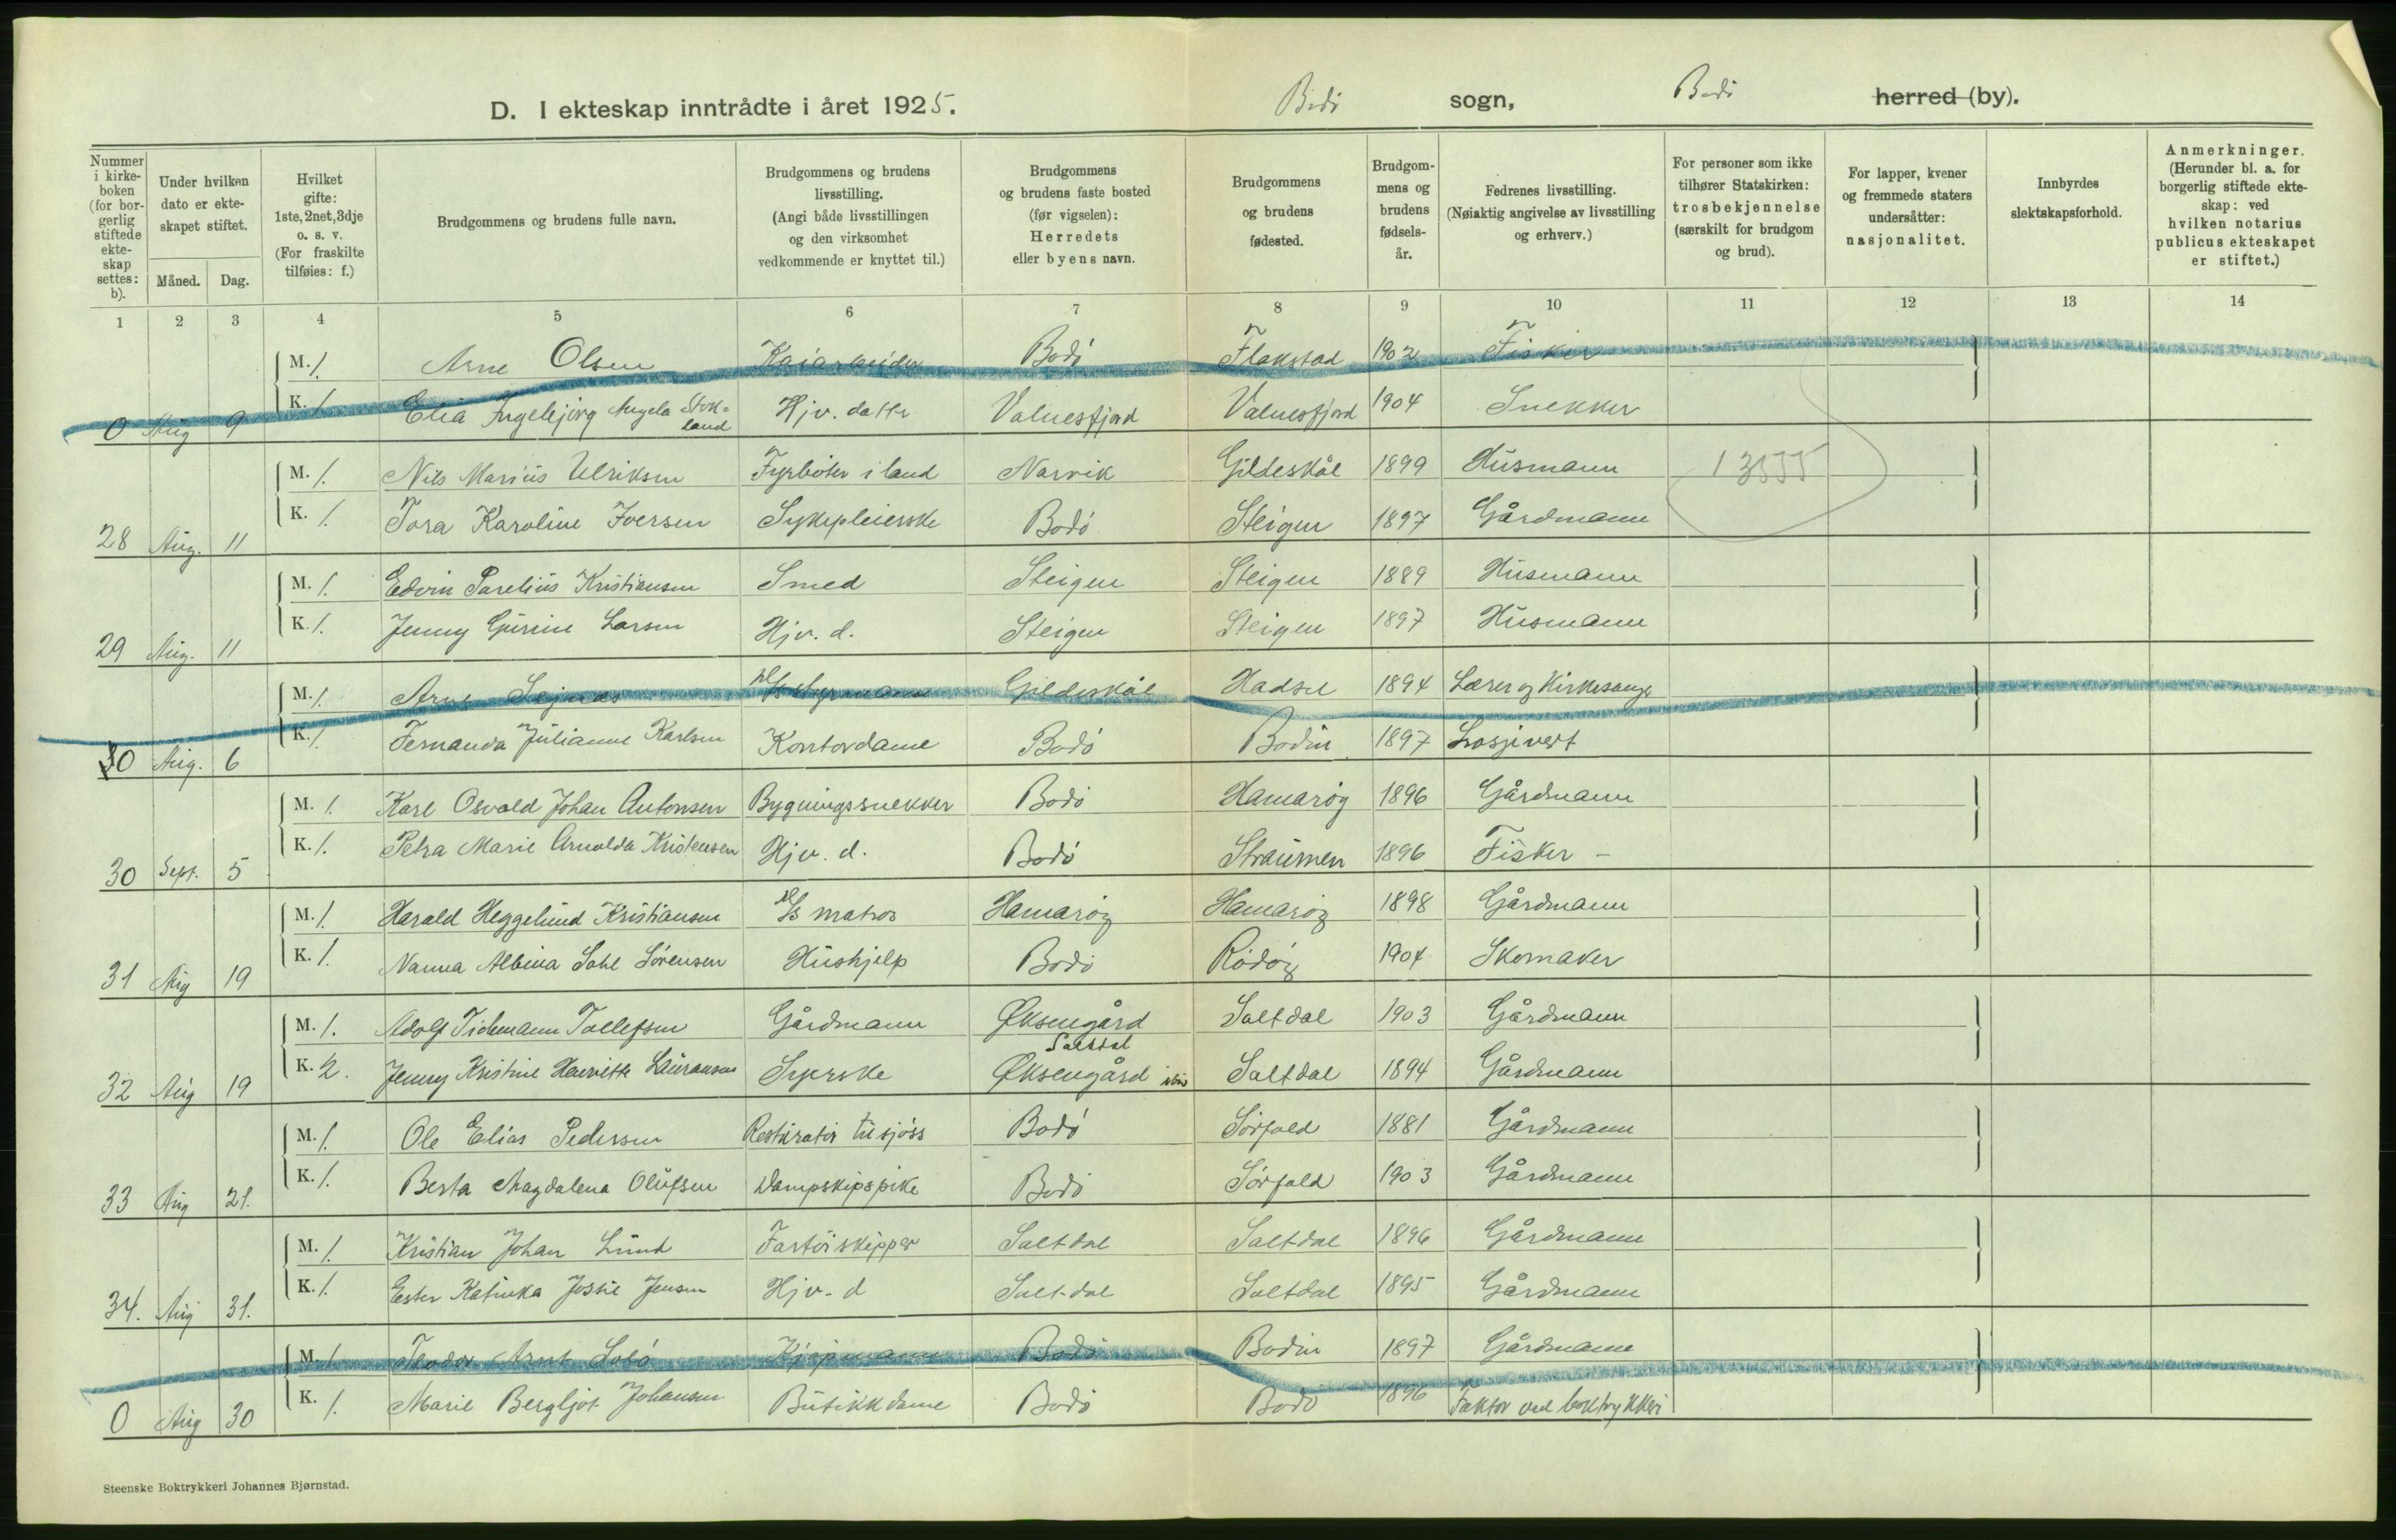 D. I ekteskap inntrådte i året 1925. Bodö sogn, Bodö herred (by).
Nummer i kirkeboken (for borgerlig stiftede ekteskap settes: b).
Under hvilken dato er ekteskapet stiftet.
Måned. Dag.
Hvilket gifte: 1ste, 2net, 3dje o. s. v. (For fraskilte tilføies: f.)
Brudgommens og brudens fulle navn.
Brudgommens og brudens livsstilling. (Angi både livsstillingen og den virksomhet vedkommende er knyttet til.)
Brudgommens og brudens faste bosted (før vigselen): Herredets eller byens navn.
Brudgommens og brudens fødested.
Brudgommens og brudens fødselsår.
Fedrenes livsstilling. (Nøiaktig angivelse av livsstilling og erhverv.)
For personer som ikke tilhører Statskirken: trosbekjennelse (særskilt for brudgom og brud).
For lapper, kvener og fremmede staters undersåtter: nasjonalitet.
Innbyrdes slektskapsforhold.
Anmerkninger. (Herunder bl. a. for borgerlig stiftede ekteskap: ved hvilken notarius publicus ekteskapet er stiftet.)
1 2 3 4 5 6 7 8 9 10 11 12 13 14
M. 1. Arne Olsen Kaiarbeider Bodö Flakstad 1902 Fisker
0 Aug 9 K. 1. Elia Ingebjörg Angela Stokland Hjv. datter Valnesfjord Valnesfjord 1904 Snekker
M. 1. Nils Marius Ulriksen Fyrböter i land Narvik Gildeskål 1899 Husmann 13555
28 Aug. 11 K. 1. Tora Karoline Iversen Sykepleierske Bodö Steigen 1897 Gårdmann
M. 1. Edvin Parelius Kristiansen Smed Steigen Steigen 1889 Husmann
29 Aug. 11 K. 1. Jenny Gurine Larsen Hjv. d. Steigen Steigen 1897 Husmann
M. 1. Arne Styrmann Gildeskål Hadsel 1894 Lærer og Kirkesanger
30 Aug. 6 K. 1. Fernanda Julianne Karlsen Kontordame Bodö Bodin 1897 Losjivert
M. 1. Karl Osvald Johan Antonsen Bygningssnekker Bodö Hamaröy 1896 Gårdmann
30 Sept. 5 K. 1. Petra Marie Arnolda Kristensen Hjv. d. Bodö Straumen 1896 Fisker –
M. 1. Harald Heggelund Kristiansen matros Hamaröy Hamaröy 1898 Gårdmann
31 Aug 19 K. 1. Nanna Albina Dahl Sörensen Hushjelp Bodö Rödöy 1904 Skomaker
M. 1. Adolf Tidemann Tollefsen Gårdmann Øksengård Saltdal Saltdal 1903 Gårdmann
32 Aug 19 K. 2. Jenny Kristine Henrette Lauransen Syerske Øksengård Saltdal 1894 Gårdmann
M. 1. Ole Elias Pedersen Resturatör tilsjöss Bodö Sörfold 1881 Gårdmann
33 Aug 21. K. 1. Berta Magdalena Olufsen Dampskipspike Bodö Sörfold 1903 Gårdmann
M. 1. Kristian Johan Lund Fartöiskipper Saltdal Saltdal 1896 Gårdmann
34. Aug 31. K. 1. Ester Katinka Jensen Hjv. d Saltdal Saltdal 1895 Gårdmann
M. 1. Teodor Arnt Kjöpmann Bodö Bodin 1897 Gårdmann
0 Aug 30 K. 1. Marie Bergljot Johansen Butikkdame Bodö Bodö 1896 Faktor ved boktrykkeri
Steenske Boktrykkeri Johannes Bjørnstad.